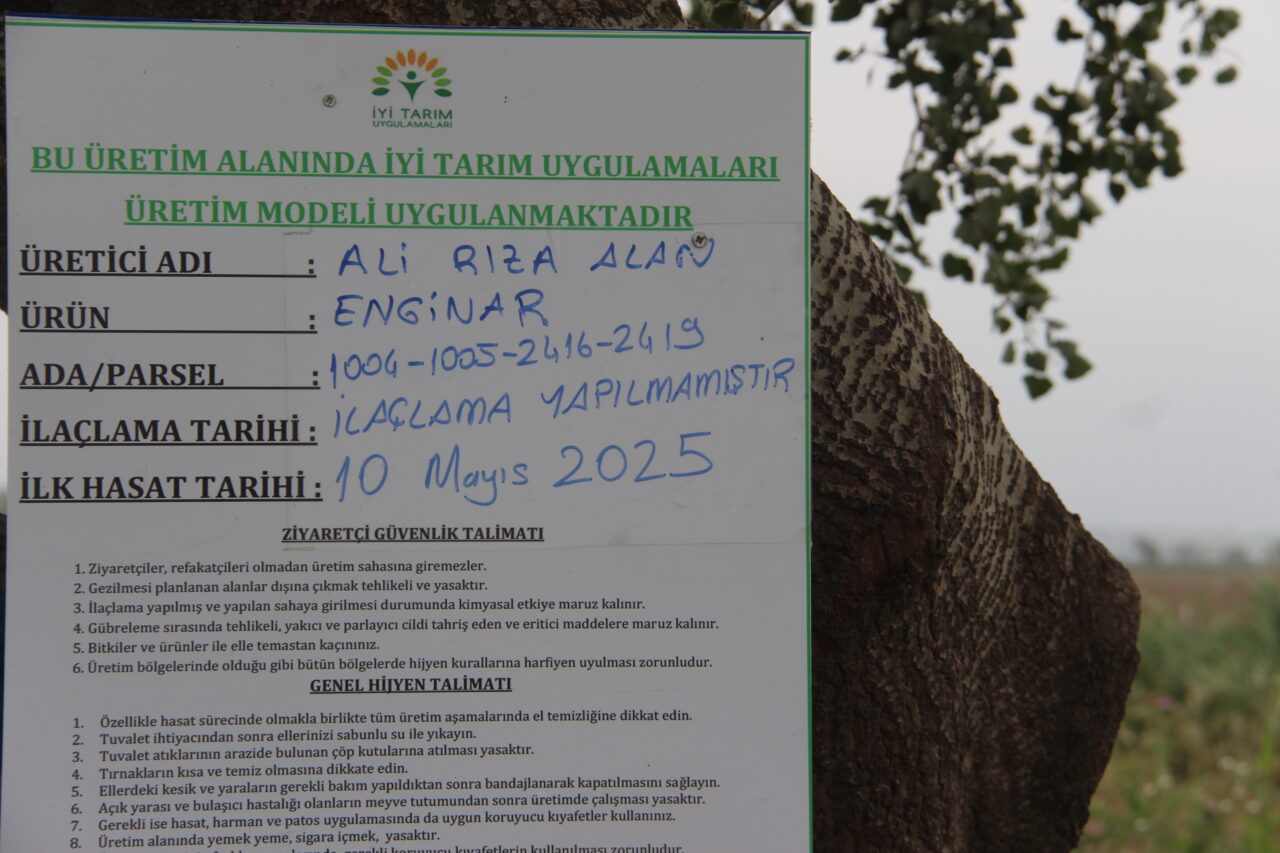 İYİ TARIM
UYGULAMALARI
BU ÜRETİM ALANINDA İYİ TARIM UYGULAMALARI
ÜRETİM MODELİ UYGULANMAKTADIR
ÜRETİCİ ADI : ALİ RIZA ALAN
ÜRÜN : ENGİNAR
ADA/PARSEL : 1004-1005-2416-2419
İLAÇLAMA TARİHİ : İLAÇLAMA YAPILMAMIŞTIR
İLK HASAT TARİHİ : 10 Mayıs 2025
ZİYARETÇİ GÜVENLİK TALİMATI
1. Ziyaretçiler, refakatçileri olmadan üretim sahasına giremezler.
2. Gezilmesi planlanan alanlar dışına çıkmak tehlikeli ve yasaktır.
3. İlaçlama yapılmış ve yapılan sahaya girilmesi durumunda kimyasal etkiye maruz kalınır.
4. Gübreleme sırasında tehlikeli, yakıcı ve parlayıcı cildi tahriş eden ve eritici maddelere maruz kalınır.
5. Bitkiler ve ürünler ile elle temastan kaçınınız.
6. Üretim bölgelerinde olduğu gibi bütün bölgelerde hijyen kurallarına harfiyen uyulması zorunludur.
GENEL HİJYEN TALİMATI
1. Özellikle hasat sürecinde olmakla birlikte tüm üretim aşamalarında el temizliğine dikkat edin.
2. Tuvalet ihtiyacından sonra ellerinizi sabunlu su ile yıkayın.
3. Tuvalet atıklarının arazide bulunan çöp kutularına atılması yasaktır.
4. Tırnakların kısa ve temiz olmasına dikkate edin.
5. Ellerdeki kesik ve yaraların gerekli bakım yapıldıktan sonra bandajlanarak kapatılmasını sağlayın.
6. Açık yarası ve bulaşıcı hastalığı olanların meyve tutumundan sonra üretimde çalışması yasaktır.
7. Gerekli ise hasat, harman ve patos uygulamasında da uygun koruyucu kıyafetler kullanınız.
8. Üretim alanında yemek yeme, sigara içmek, yasaktır.
gerekli koruyucu kıyafetlerin kullanılması zorunludur.